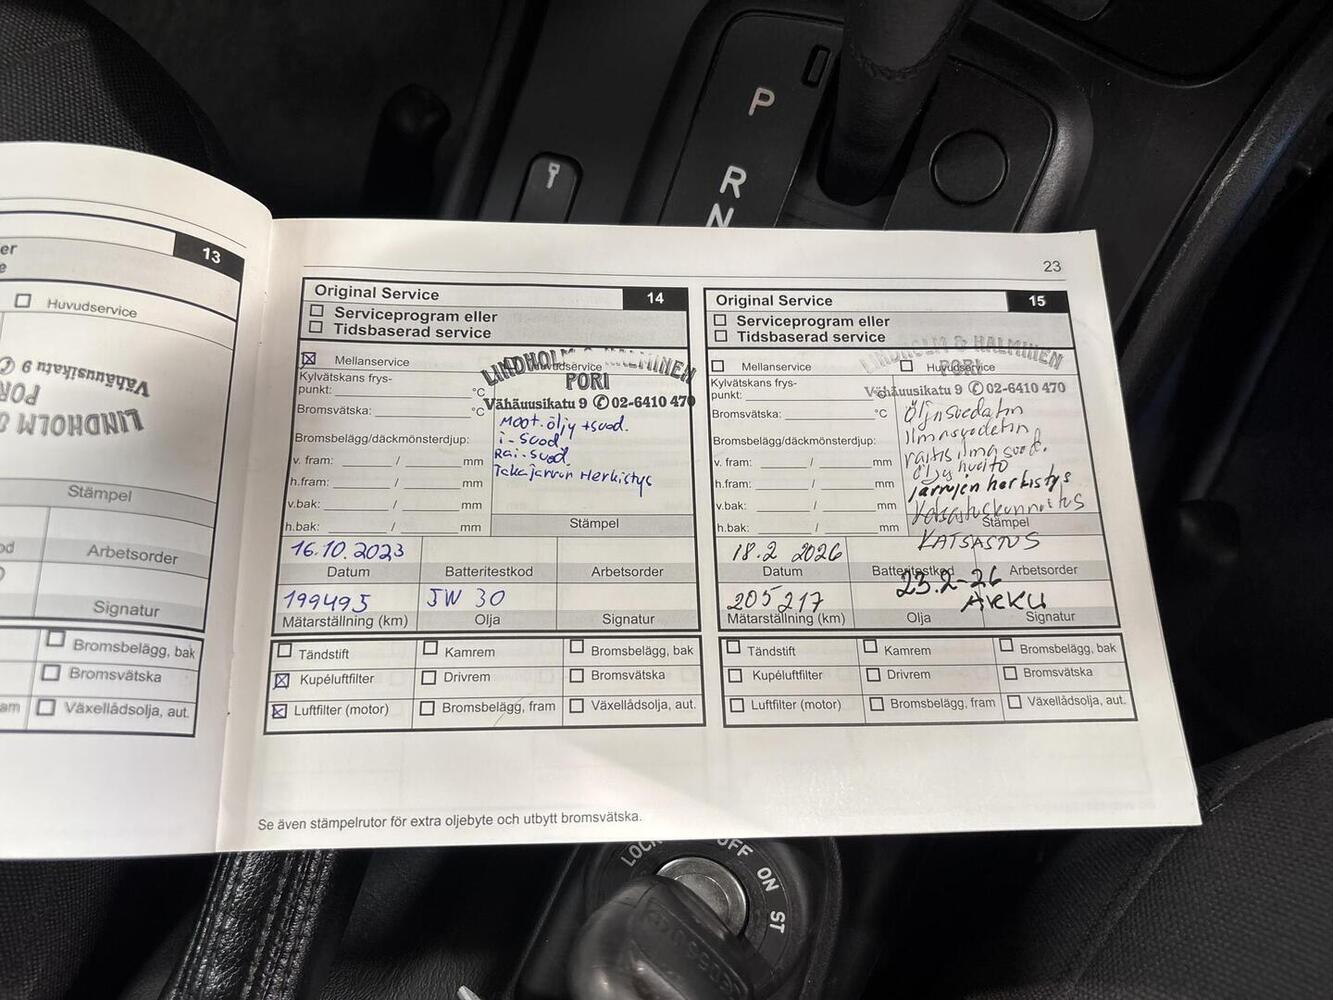 P
R
N
er
e
13
Huvudservice
Vähäuusikatu 9 ✆
POR
LINDHOLM &
Stämpel
od
Arbetsorder
Signatur
Bromsbelägg, bak
Bromsvätska
am
Växellådsolja, aut.
23
Original Service
14
Serviceprogram eller
Tidsbaserad service
Mellanservice
Huvudservice
LINDHOLM & HALMINEN
PORI
Vähäuusikatu 9 ✆ 02-6410 470
Kylvätskans frys-
punkt: °C
Bromsvätska: °C
Bromsbelägg/däckmönsterdjup:
v. fram: / mm
h.fram: / mm
v.bak: / mm
h.bak: / mm
Moot.öljy + suod.
i-suod.
Rai-suod.
Takajarrun Herkistys
Stämpel
16.10.2023
Datum
Batteritestkod
Arbetsorder
199495
5W 30
Mätarställning (km)
Olja
Signatur
Tändstift
Kamrem
Bromsbelägg, bak
Kupéluftfilter
Drivrem
Bromsvätska
Luftfilter (motor)
Bromsbelägg, fram
Växellådsolja, aut.
Original Service
15
Serviceprogram eller
Tidsbaserad service
Mellanservice
Huvudservice
LINDHOLM & HALMINEN
PORI
Vähäuusikatu 9 ✆ 02-6410 470
Kylvätskans frys-
punkt:
Bromsvätska: °C
Bromsbelägg/däckmönsterdjup:
v. fram: / mm
h.fram: / mm
v.bak: / mm
h.bak: / mm
Öljnsuodatin
Ilmnsuodatin
raitis ilma suod.
öljy huolto
jarrujen herkistys
Katsastuskunnostus
Stämpel
KATSASTUS
18.2 2026
23.2-26
Datum
Batteritestkod
Arbetsorder
205217
AKKU
Mätarställning (km)
Olja
Signatur
Tändstift
Kamrem
Bromsbelägg, bak
Kupéluftfilter
Drivrem
Bromsvätska
Luftfilter (motor)
Bromsbelägg, fram
Växellådsolja, aut.
Se även stämpelrutor för extra oljebyte och utbytt bromsvätska.
LOCK
OFF
ON
ST